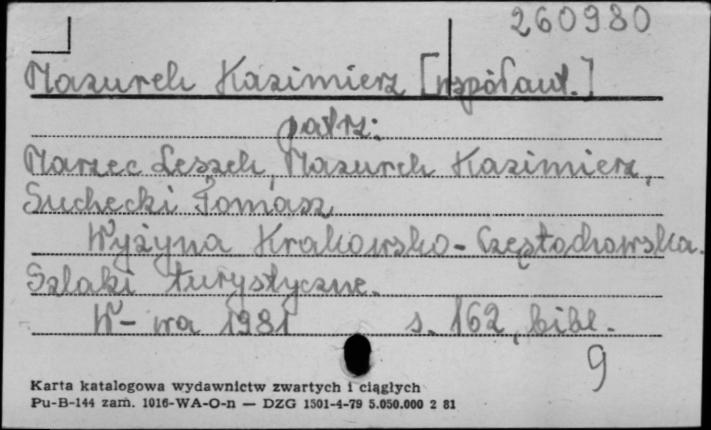 260980
Mazurek Kazimierz [współaut.]
patrz:
Marzec Leszek, Mazurek Kazimierz,
Suchecki Tomasz
Wyżyna Krakowsko-Częstochowska.
Szlaki turystyczne.
W-wa 1981 s. 162, bibl.
9
Karta katalogowa wydawnictw zwartych i ciągłych
Pu-B-144 zam. 1016-WA-O-n — DZG 1501-4-79 5.050.000 2 81